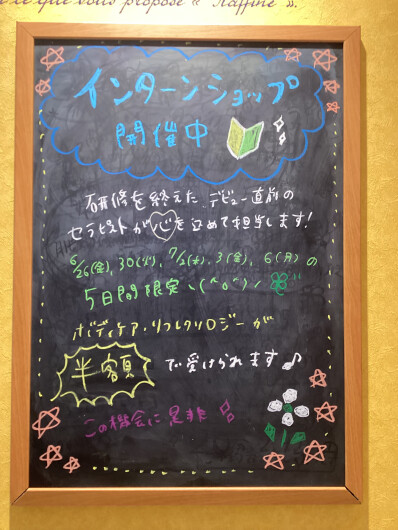 ce que vous propose « Raffine ».
インターンショップ
開催中
研修を終えた デビュー直前の
セラピストが心を込めて担当します!
6/26(金), 30(火), 7/2(木), 3(金), 6(月)の
5日間限定 \(^o^)/
ボディケア・リフレクソロジーが
半額 で受けられます♪
この機会に是非